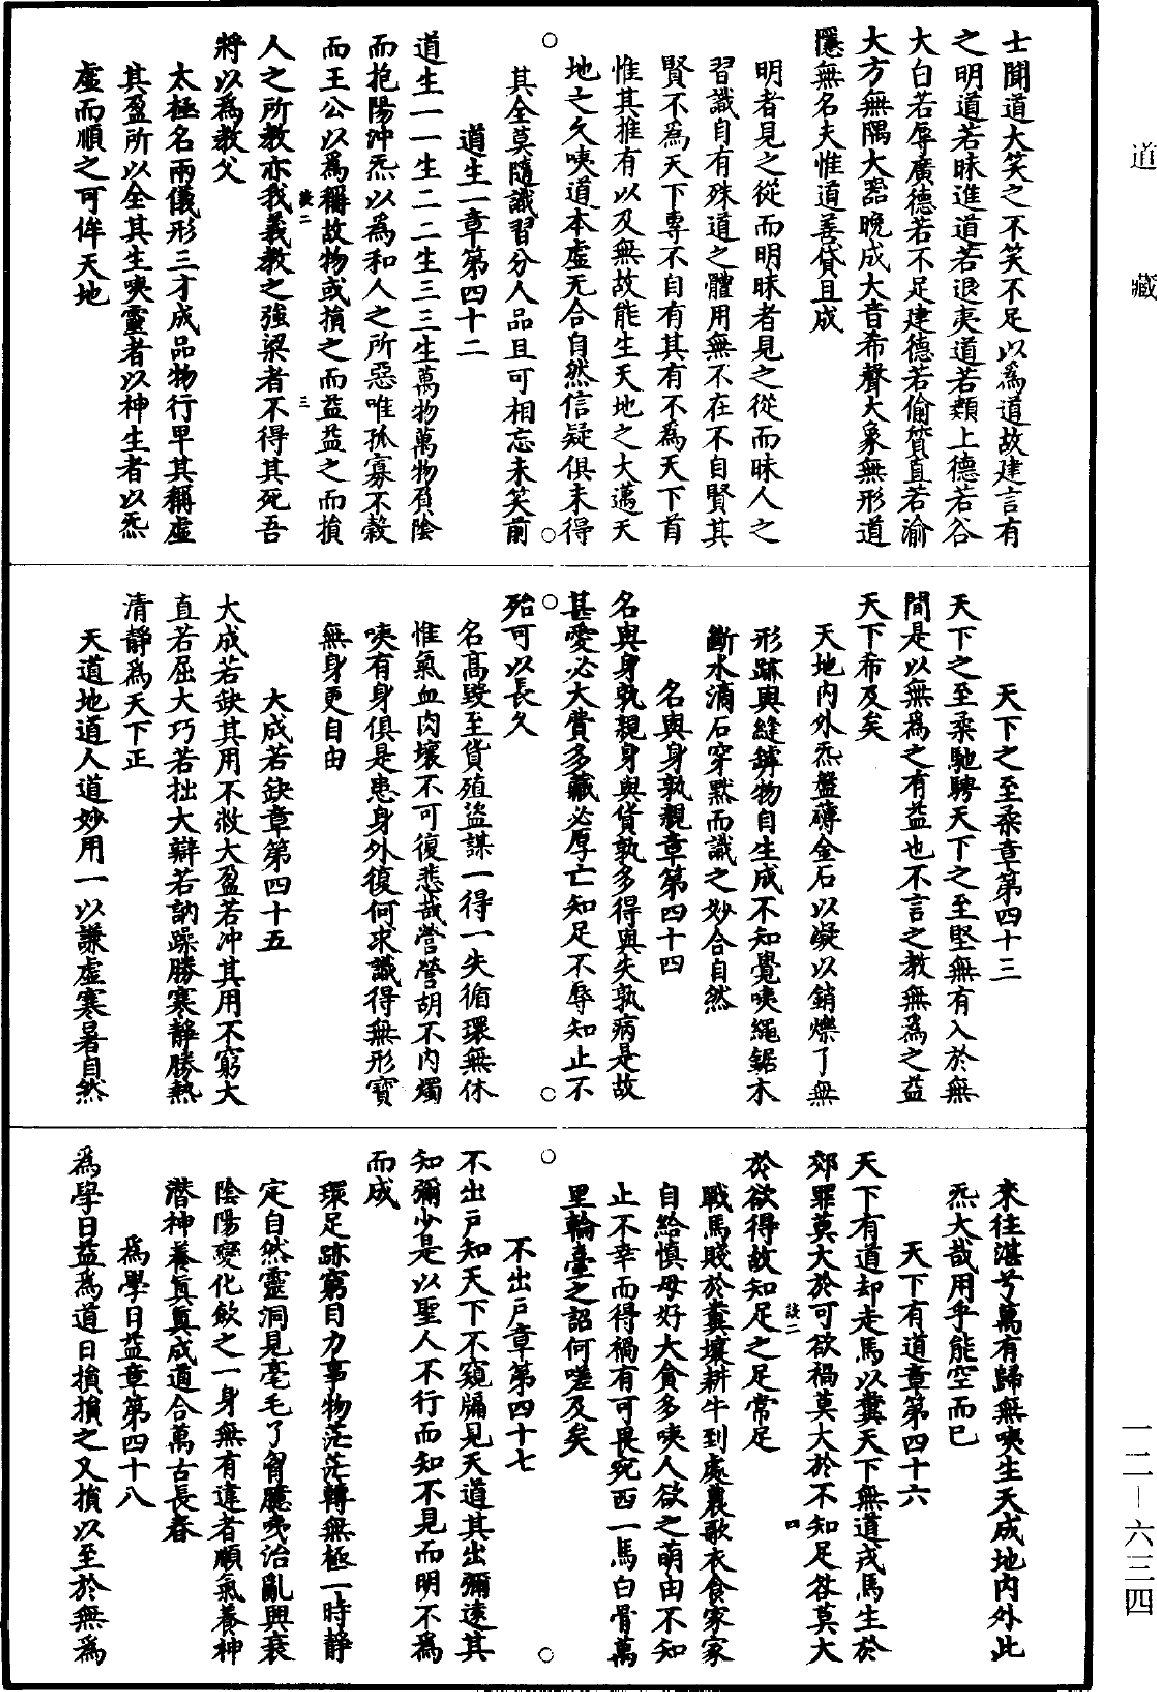 士聞道大笑之不笑不足以為道故建言有
之明道若昧進道若退夷道若纇上德若谷
大白若辱廣德若不足建德若偷質直若渝
大方無隅大器晚成大音希聲大象無形道
隱無名夫惟道善貸且成
明者見之從而明昧者見之從而昧人之
習識自有殊道之體用無不在不自賢其
賢不為天下專不自有其有不為天下首
惟其推有以及無故能生天地之大邁天
地之久咦道本虛无合自然信疑俱未得
其全莫隨識習分人品且可相忘未笑前
道生一章第四十二
道生一一生二二生三三生萬物萬物負陰
而抱陽沖炁以為和人之所惡唯孤寡不穀
而王公以為稱故物或損之而益益之而損
人之所教亦我義教之強梁者不得其死吾
將以為教父
太極名兩儀形三才成品物行早其稱虛
其盈所以全其生咦靈者以神生者以炁
虛而順之可侔天地
天下之至柔章第四十三
天下之至柔馳騁天下之至堅無有入於無
間是以無為之有益也不言之教無為之益
天下希及矣
天地內外炁盤礡金石以凝以銷爍了無
形跡與縫罅物自生成不知覺咦繩鋸木
斷水滴石穿默而識之妙合自然
名與身孰親章第四十四
名與身孰親身與貨孰多得與失孰病是故
甚愛必大費多藏必厚亡知足不辱知止不
殆可以長久
名高毀至貨殖盜謀一得一失循環無休
惟氣血肉壞不可復悲哉營營胡不內燭
咦有身俱是患身外復何求識得無形寶
無身更自由
大成若缺章第四十五
大成若缺其用不敝大盈若冲其用不窮大
直若屈大巧若拙大辯若訥躁勝寒靜勝熱
清靜為天下正
天道地道人道妙用一以謙虛寒暑自然
來往湛兮萬有歸無咦生天成地內外此
炁大哉用乎能空而已
天下有道章第四十六
天下有道却走馬以糞天下無道戎馬生於
郊罪莫大於可欲禍莫大於不知足咎莫大
於欲得故知足之足常足
戰馬賤於糞壤耕牛到處農歌衣食家家
自給慎毋好大貪多咦人欲之萌由不知
止不幸而得禍有可畏宛西一馬白骨萬
里輪臺之詔何嗟及矣
不出戶章第四十七
不出戶知天下不窺牖見天道其出彌遠其
知彌少是以聖人不行而知不見而明不為
而成
環足跡窮目力事物茫茫轉無極一時靜
定自然靈洞見毫毛了胷臆咦治亂興衰
陰陽變化歛之一身無有違者順氣養神
潛神養真真成道合萬古長春
為學日益章第四十八
為學日益為道日損損之又損以至於無為
道藏
一二—六三四